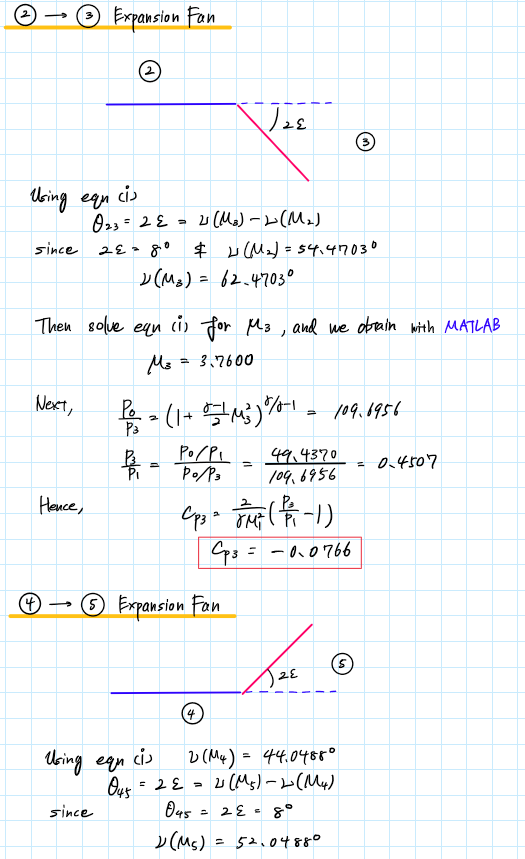 ② → ③ Expansion Fan
②
2ε
③
Using eqn (i)
θ₂₃ = 2ε = ν(M₃) − ν(M₂)
since 2ε = 8° & ν(M₂) = 54.4703°
ν(M₃) = 62.4703°
Then solve eqn (i) for M₃, and we obtain with MATLAB
M₃ = 3.7600
Next, P₀/P₃ = (1 + (γ−1)/2 M₃²)^(γ/γ−1) = 109.6956
P₃/P₁ = (P₀/P₁)/(P₀/P₃) = 49.4370/109.6956 = 0.4507
Hence, Cp₃ = 2/(γM₁²) (P₃/P₁ − 1)
Cp₃ = −0.0766
④ → ⑤ Expansion Fan
2ε
⑤
④
Using eqn (i) ν(M₄) = 44.0488°
θ₄₅ = 2ε = ν(M₅) − ν(M₄)
since θ₄₅ = 2ε = 8°
ν(M₅) = 52.0488°